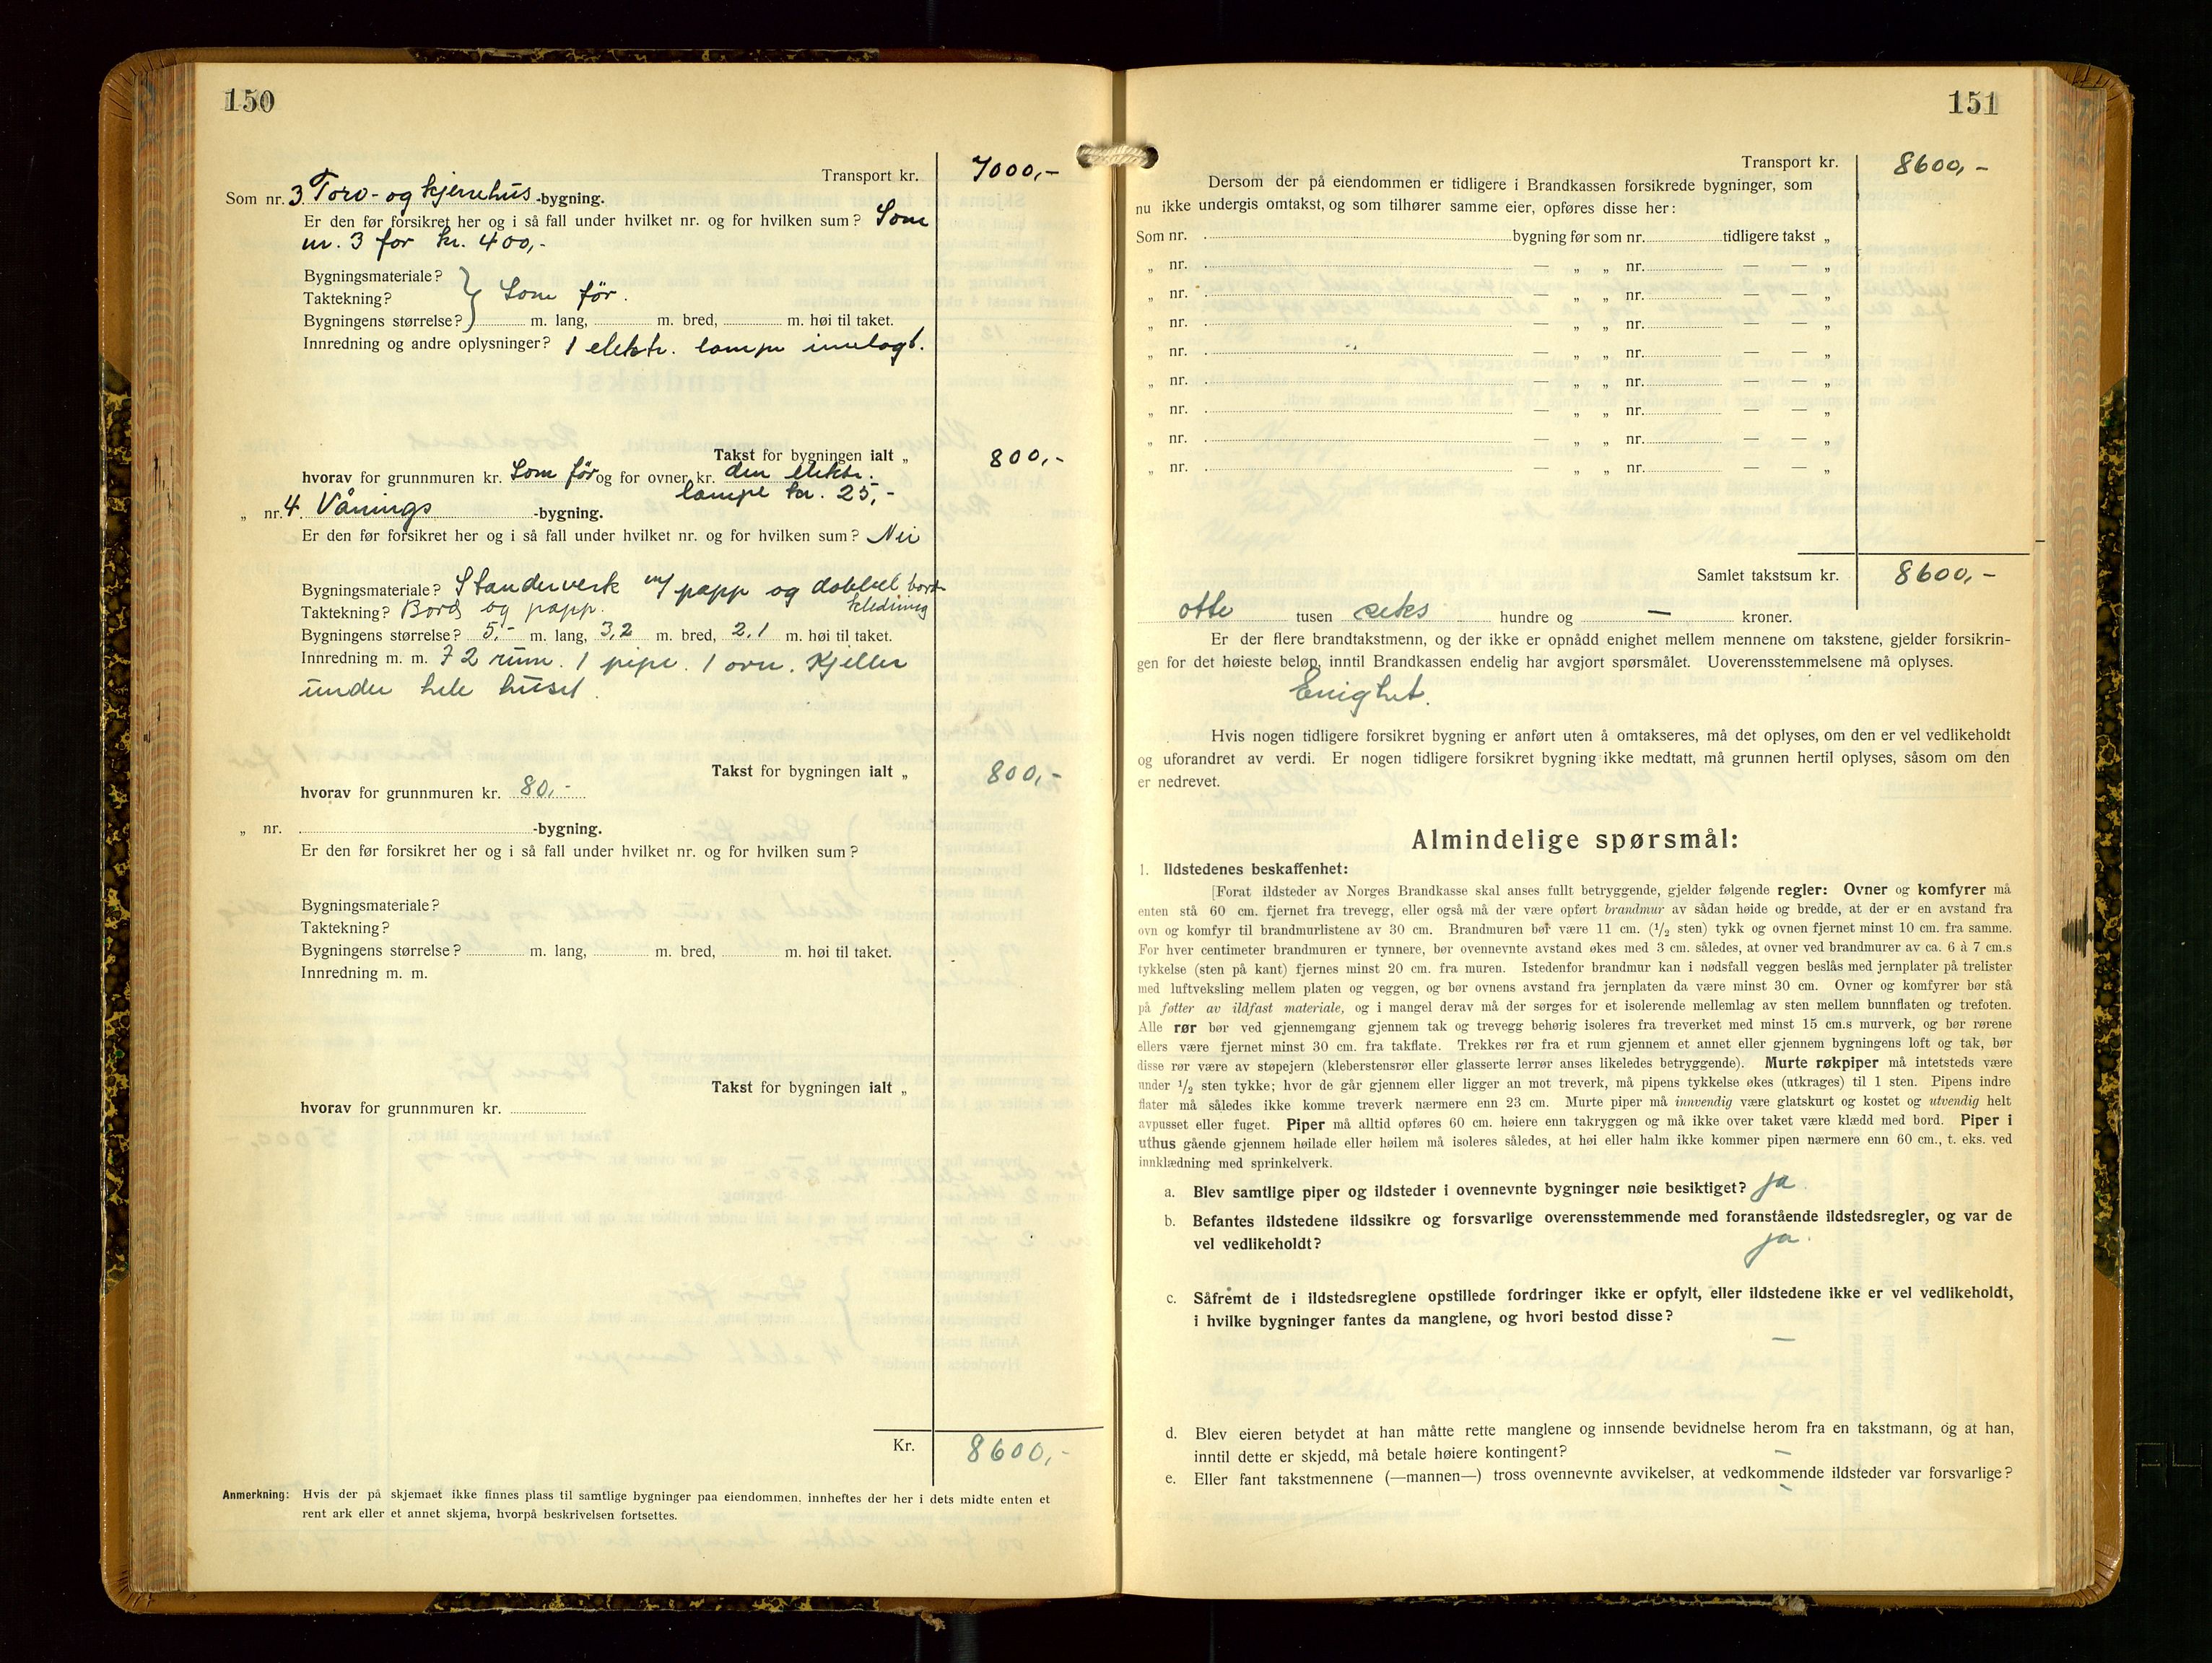 150
Transport kr. 7000,-
Som nr. 3 Torv- og kjerrehus -bygning.
Er den før forsikret her og i så fall under hvilket nr. og for hvilken sum? Som
nr. 3 for kr. 400,-
Bygningsmateriale?
Taktekning? } Som før.
Bygningens størrelse? m. lang, m. bred, m. høi til taket.
Innredning og andre oplysninger? 1 elektr. lampe innlagt.
Takst for bygningen ialt „ 800,-
hvorav for grunnmuren kr. Som før og for ovner kr. den elektr.
lampe kr. 25,-
„ nr. 4 Vånings -bygning.
Er den før forsikret her og i så fall under hvilket nr. og for hvilken sum? Nei
Bygningsmateriale? Standerverk m/ papp og dobbel bord-
Taktekning? Bord og papp. kledning
Bygningens størrelse? 5,- m. lang, 3,2 m. bred, 2,1 m. høi til taket.
Innredning m. m. 2 rum. 1 pipe. 1 ovn. Kjeller
under hele huset.
Takst for bygningen ialt „ 800,-
hvorav for grunnmuren kr. 80,-
„ nr. -bygning.
Er den før forsikret her og i så fall under hvilket nr. og for hvilken sum?
Bygningsmateriale?
Taktekning?
Bygningens størrelse? m. lang, m. bred, m. høi til taket.
Innredning m. m.
Takst for bygningen ialt „
hvorav for grunnmuren kr.
Kr. 8600,-
Anmerkning: Hvis der på skjemaet ikke finnes plass til samtlige bygninger paa eiendommen, innheftes der her i dets midte enten et
rent ark eller et annet skjema, hvorpå beskrivelsen fortsettes.
151
Transport kr. 8600,-
Dersom der på eiendommen er tidligere i Brandkassen forsikrede bygninger, som
nu ikke undergis omtakst, og som tilhører samme eier, opføres disse her:
Som nr. bygning før som nr. tidligere takst „
„ nr. — „ „ nr. — — „
„ nr. — „ „ nr. — — „
„ nr. — „ „ nr. — — „
„ nr. — „ „ nr. — — „
„ nr. — „ „ nr. — — „
„ nr. — „ „ nr. — — „
„ nr. — „ „ nr. — — „
„ nr. — „ „ nr. — — „
Samlet takstsum kr. 8600,-
otte tusen seks hundre og — kroner.
Er der flere brandtakstmenn, og der ikke er opnådd enighet mellem mennene om takstene, gjelder forsikrin-
gen for det høieste beløp, inntil Brandkassen endelig har avgjort spørsmålet. Uoverensstemmelsene må oplyses.
Enighet.
Hvis nogen tidligere forsikret bygning er anført uten å omtakseres, må det oplyses, om den er vel vedlikeholdt
og uforandret av verdi. Er nogen tidligere forsikret bygning ikke medtatt, må grunnen hertil oplyses, såsom om den
er nedrevet.
Almindelige spørsmål:
1. Ildstedenes beskaffenhet:
[Forat ildsteder av Norges Brandkasse skal anses fullt betryggende, gjelder følgende regler: Ovner og komfyrer må
enten stå 60 cm. fjernet fra trevegg, eller også må der være opført brandmur av sådan høide og bredde, at der er en avstand fra
ovn og komfyr til brandmurlistene av 30 cm. Brandmuren bør være 11 cm. (1/2 sten) tykk og ovnen fjernet minst 10 cm. fra samme.
For hver centimeter brandmuren er tynnere, bør ovennevnte avstand økes med 3 cm. således, at ovner ved brandmurer av ca. 6 à 7 cm.s
tykkelse (sten på kant) fjernes minst 20 cm. fra muren. Istedenfor brandmur kan i nødsfall veggen beslås med jernplater på trelister
med luftveksling mellem platen og veggen, og bør ovnens avstand fra jernplaten da være minst 30 cm. Ovner og komfyrer bør stå
på føtter av ildfast materiale, og i mangel derav må der sørges for et isolerende mellemlag av sten mellem bunnflaten og trefoten.
Alle rør bør ved gjennemgang gjennem tak og trevegg behørig isoleres fra treverket med minst 15 cm.s murverk, og bør rørene
ellers være fjernet minst 30 cm. fra takflate. Trekkes rør fra et rum gjennem et annet eller gjennem bygningens loft og tak, bør
disse rør være av støpejern (kleberstensrør eller glasserte lerrør anses likeledes betryggende). Murte røkpiper må intetsteds være
under 1/2 sten tykke; hvor de går gjennem eller ligger an mot treverk, må pipens tykkelse økes (utkrages) til 1 sten. Pipens indre
flater må således ikke komme treverk nærmere enn 23 cm. Murte piper må innvendig være glatskurt og kostet og utvendig helt
avpusset eller fuget. Piper må alltid opføres 60 cm. høiere enn takryggen og må ikke over taket være klædd med bord. Piper i
uthus gående gjennem høilade eller høilem må isoleres således, at høi eller halm ikke kommer pipen nærmere enn 60 cm., t. eks. ved
innklædning med sprinkelverk.
a. Blev samtlige piper og ildsteder i ovennevnte bygninger nøie besiktiget? ja.
b. Befantes ildstedene ildssikre og forsvarlige overensstemmende med foranstående ildstedsregler, og var de
vel vedlikeholdt? ja.
c. Såfremt de i ildstedsreglene opstillede fordringer ikke er opfylt, eller ildstedene ikke er vel vedlikeholdt,
i hvilke bygninger fantes da manglene, og hvori bestod disse?
—
d. Blev eieren betydet at han måtte rette manglene og innsende bevidnelse herom fra en takstmann, og at han,
inntil dette er skjedd, må betale høiere kontingent? —
e. Eller fant takstmennene (—mannen—) tross ovennevnte avvikelser, at vedkommende ildsteder var forsvarlige?
—